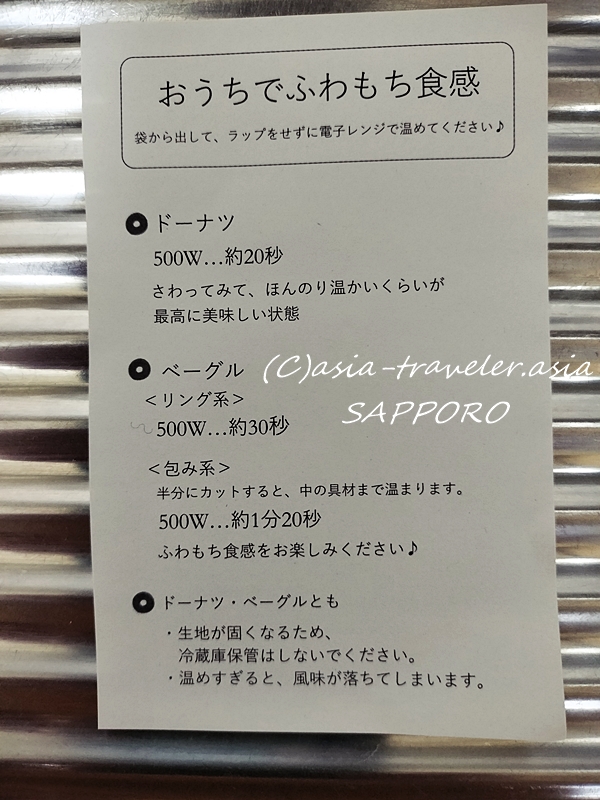 おうちでふわもち食感
袋から出して、ラップをせずに電子レンジで温めてください♪
ドーナツ
500W…約20秒
さわってみて、ほんのり温かいくらいが
最高に美味しい状態
ベーグル
(C)asia-traveler.asia
SAPPORO
＜リング系＞
500W…約30秒
＜包み系＞
半分にカットすると、中の具材まで温まります。
500W…約1分20秒
ふわもち食感をお楽しみください♪
ドーナツ・ベーグルとも
・生地が固くなるため、
冷蔵庫保管はしないでください。
・温めすぎると、風味が落ちてしまいます。